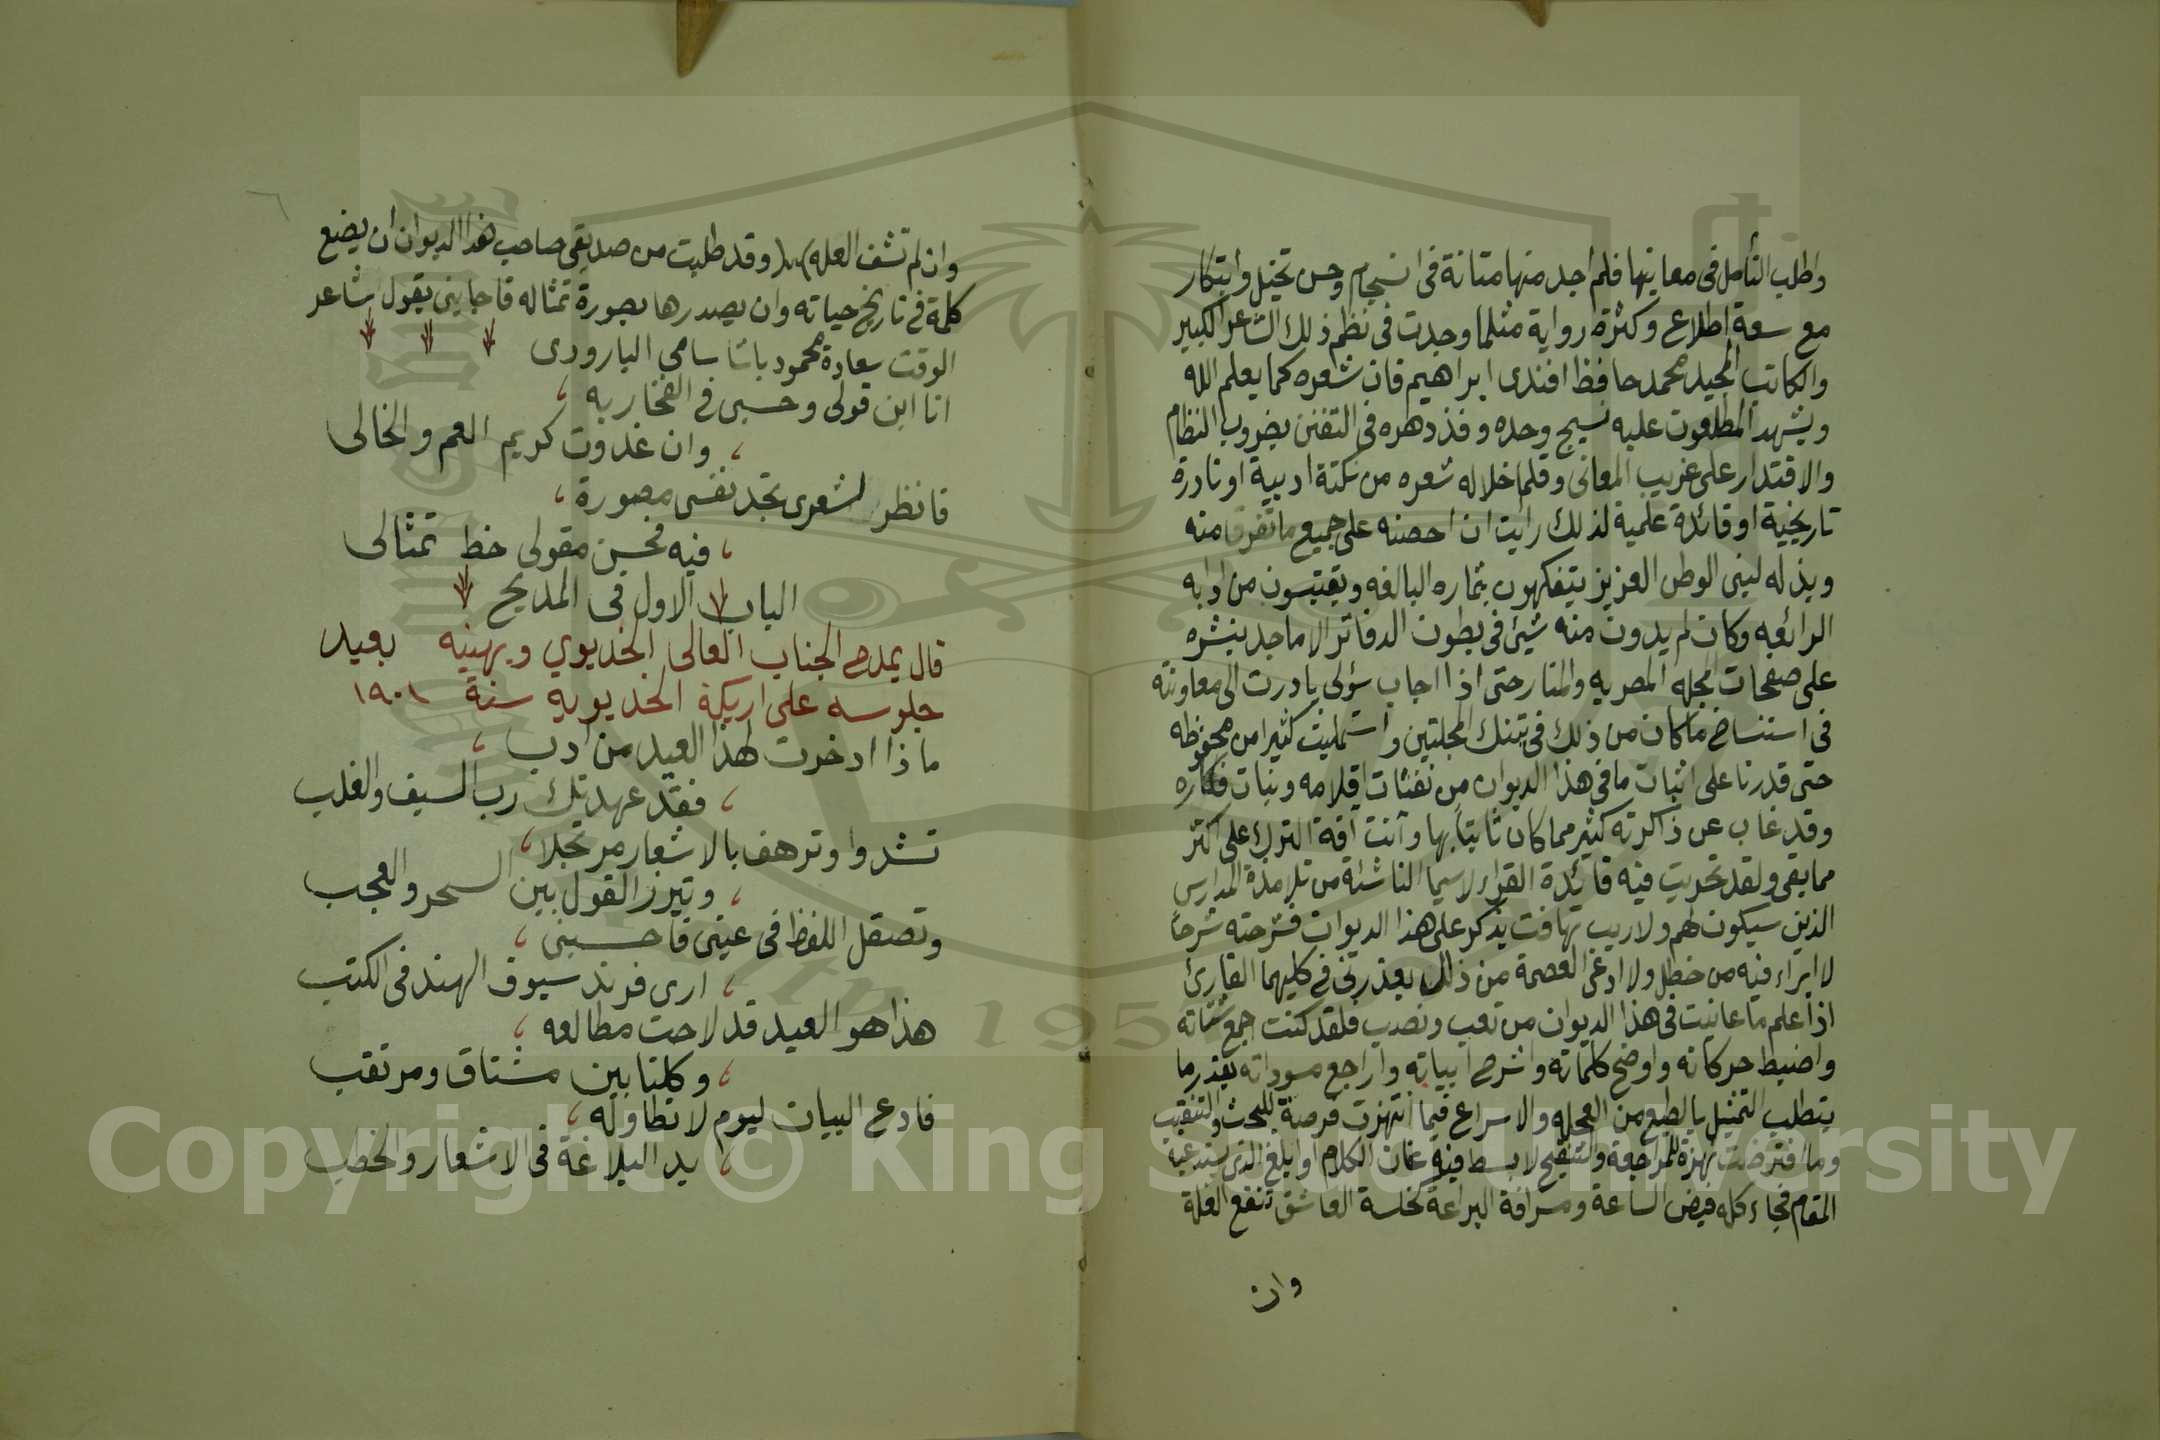 واطلب التأمل فى معانيها فلم اجد منها متانة فى انسجام وحسن تخيل وابتكار
مع سعة اطلاع وكثرة رواية مثلما وجدت فى نظم ذلك الشاعر الكبير
والكاتب المجيد محمد حافظ افندى ابراهيم فان شعره كما يعلم الله
ويشهد المطلعون عليه نسيج وحده وفذ دهره فى التفنن بضروب النظام
والاقتدار على غريب المعانى وقلما خلا له شعره من نكتة ادبية او نادرة
تاريخية او فائدة علمية لذلك رايت ان احصنه على جميع ما تفرق منه
وبذله لبنى الوطن العزيز يتفكهون بثماره اليانعه ويقتبسون من ادابه
الرائعه وكان لم يدون منه شيئ فى بطون الدفاتر الا ما جد بنشره
على صفحات المجله المصريه والمنار حتى اذا اجاب سؤلى بادرت الى معاونته
فى استنساخ ما كان من ذلك فى تينك المجلتين واستمليت كثيرا من محفوظه
حتى قدرنا على اثبات ما فى هذا الديوان من نفثات اقلامه وبنات فكاره
وقد غاب عن ذاكرته كثير مما كان ثابتاً بها وأنت آفة الترك على اكثر
مما بقى ولقد تحريت فيه فائدة القراء لاسيما الناشئة من تلامذة المدارس
الذين سيكون لهم ولاريب تهافت يذكر على هذا الديوان فشرحته شرحاً
لا ابراء فيه من خطل ولا ادعى العصمة من ذلل يعذرنى فى كليهما القارئ
اذا علم ما عانيت فى هذا الديوان من تعب ونصب فلقد كنت اجمع شتاته
واضبط حركاته واوضح كلماته واشرح ابياته واراجع مسوداته بقدر ما
يتطلب التمثيل بالطبع من العجله والاسراع فيما انتهزت فرصة للبحث والتنقيب
وما افترضت نهزة للمراجعة والتنقيح لابسط فيه عنان الكلام او ابلغ الذى يستدعيه
المقام فجاء كله فيض الساعة ومسرافة البراعة كخلسة العاشق تنفع الغلة
وان
وان لم تشف العله) وقد طلبت من صديقى صاحب هذا الديوان ان يضع
كلمة فى تاريخ حياته وان يصدرها بصورة تمثاله فاجابنى بقول شاعر
الوقت سعادة محمود باشا سامى البارودى
انا ابن قولى وحسبى فى الفخار به
وان غدوت كريم العم والخالى
فانظر لشعرى تجد نفسى مصورة
فيه فحسن مقولى خط تمثالى
الباب الاول فى المديح
قال يمدح الجناب العالى الخديوي ويهنيه بعيد
جلوسه على اريكة الخديويه سنة ١٩٠١
ماذا ادخرت لهذا العيد من ادب
فقد عهدتك رب السيف والغلب
تشدوا وترهف بالاشعار مرتجلا
وتبرز القول بين السحر والعجب
وتصقل اللفظ فى عينى فاحسبنى
ارى فرند سيوف الهند فى الكتب
هذا هو العيد قد لاحت مطالعه
وكلنا بين مشتاق ومرتقب
فادع البيان ليوم لا تطاوله
يد البلاغة فى الاشعار والخطب
Copyright © King Saud University